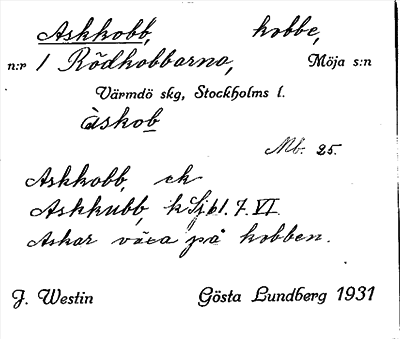 Askkobb, kobbe,
n:r 1 Rödkobbarna, Möja s:n
Värmdö skg, Stockholms l.
àskob
Mb. 25.
Askkobb, ek
Askkubb, k Sjkl. 7. VI.
Askar växa på kobben.
J. Westin Gösta Lundberg 1931